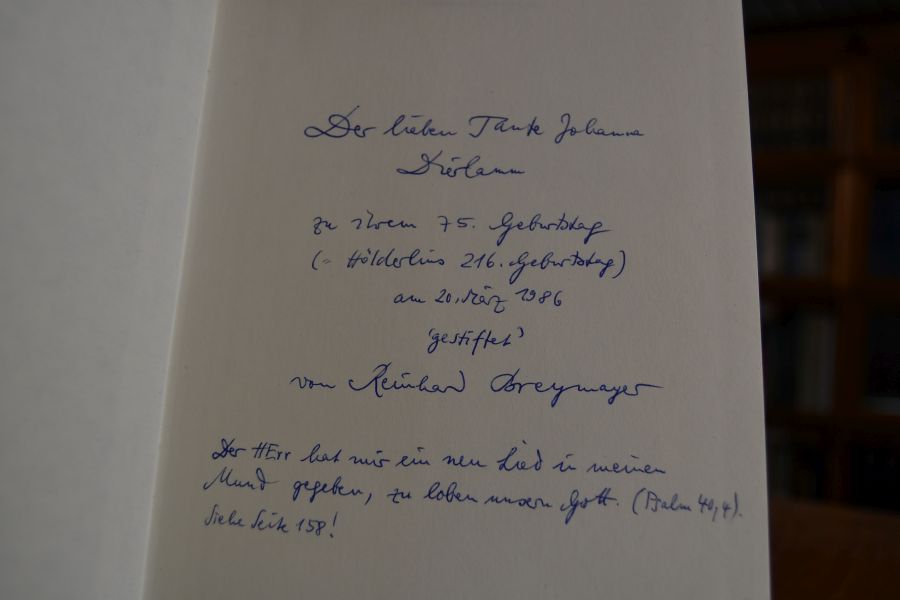 Der lieben Tante Johanna
Dierlamm
zu ihrem 75. Geburtstag
(= Hölderlins 216. Geburtstag)
am 20. März 1986
'gestiftet'
von Reinhard Breymayer
Der HErr hat mir ein neu Lied in meinen
Mund gegeben, zu loben unsern Gott. (Psalm 40,4).
Siehe Seite 158!